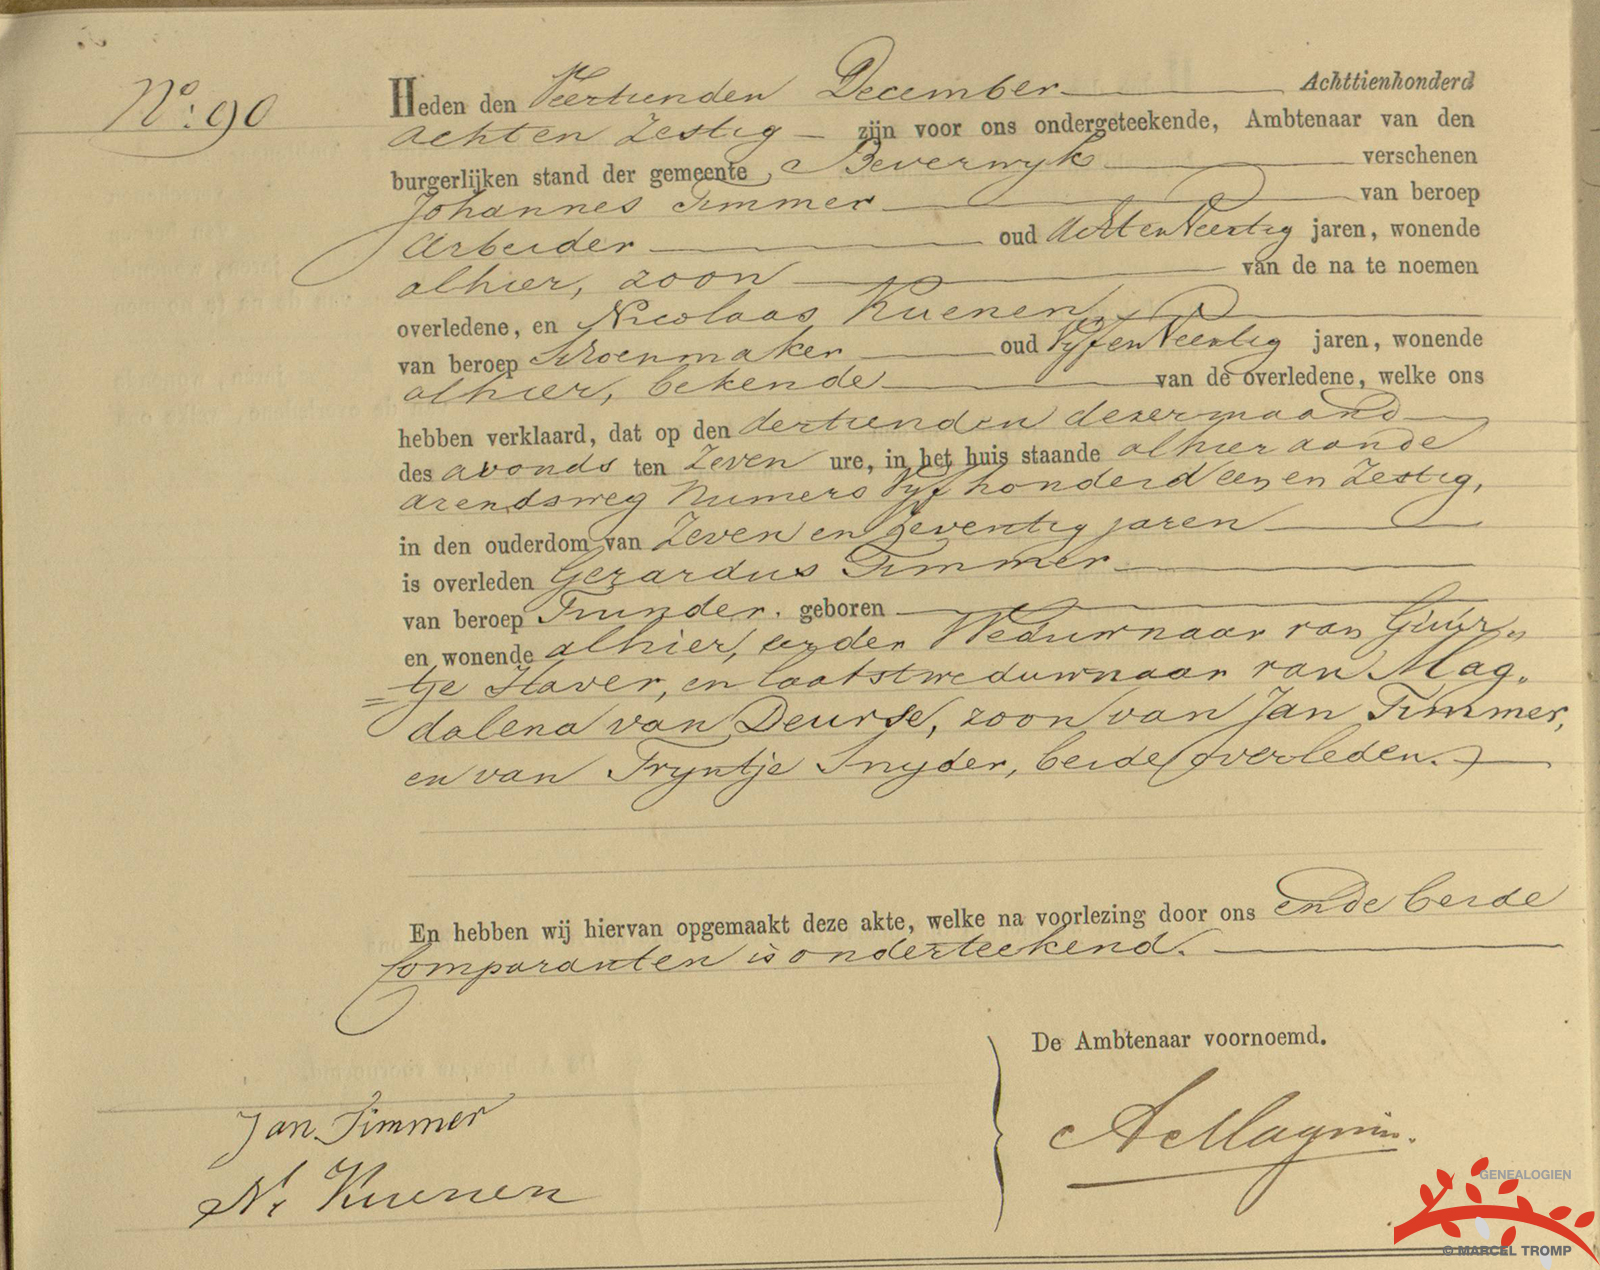 No: 90
Heden den Veertienden December Achttienhonderd
achten Zestig zijn voor ons ondergeteekende, Ambtenaar van den
burgerlijken stand der gemeente Beverwyk verschenen
Johannes Timmer van beroep
Arbeider oud Achten Veertig jaren, wonende
alhier, zoon van de na te noemen
overledene, en Nicolaas Kuenen
van beroep Schoenmaker oud Vyf en Veertig jaren, wonende
alhier, bekende van de overledene, welke ons
hebben verklaard, dat op den dertienden dezer maand
des avonds ten Zeven ure, in het huis staande alhier aande
arendsweg Numero Vyf honderd een en Zestig,
in den ouderdom van Zeven en Zeventig jaren
is overleden Gerardus Timmer
van beroep Tuinder. geboren
en wonende alhier, eerder Weduwnaar van Guur„
=tje Haver, en laatst weduwnaar van Mag„
dalena van Deurse, zoon van Jan Timmer,
en van Tryntje Snyder, beide overleden.
En hebben wij hiervan opgemaakt deze akte, welke na voorlezing door ons ende beide
Comparanten is onderteekend.
De Ambtenaar voornoemd.
Jan Timmer
N. Kuenen
GENEALOGIEN
© MARCEL TROMP